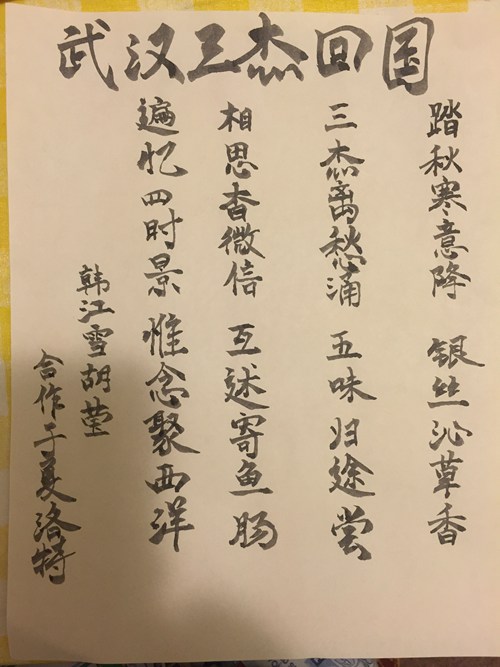 武汉三杰回国
踏秋寒意降 银丝沁草香
三杰离愁涌 五味归途尝
相思杳微信 互述寄鱼肠
遍忆四时景 惟念聚西洋
韩江雪胡莹
合作于夏洛特